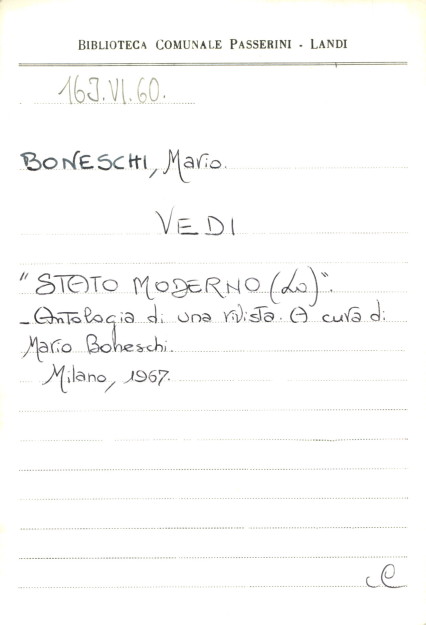 BIBLIOTECA COMUNALE PASSERINI - LANDI
16J.VI.60.
BONESCHI, Mario.
VEDI
"STATO MODERNO (Lo)".
- Antologia di una rivista. A cura di
Mario Boneschi.
Milano, 1967.